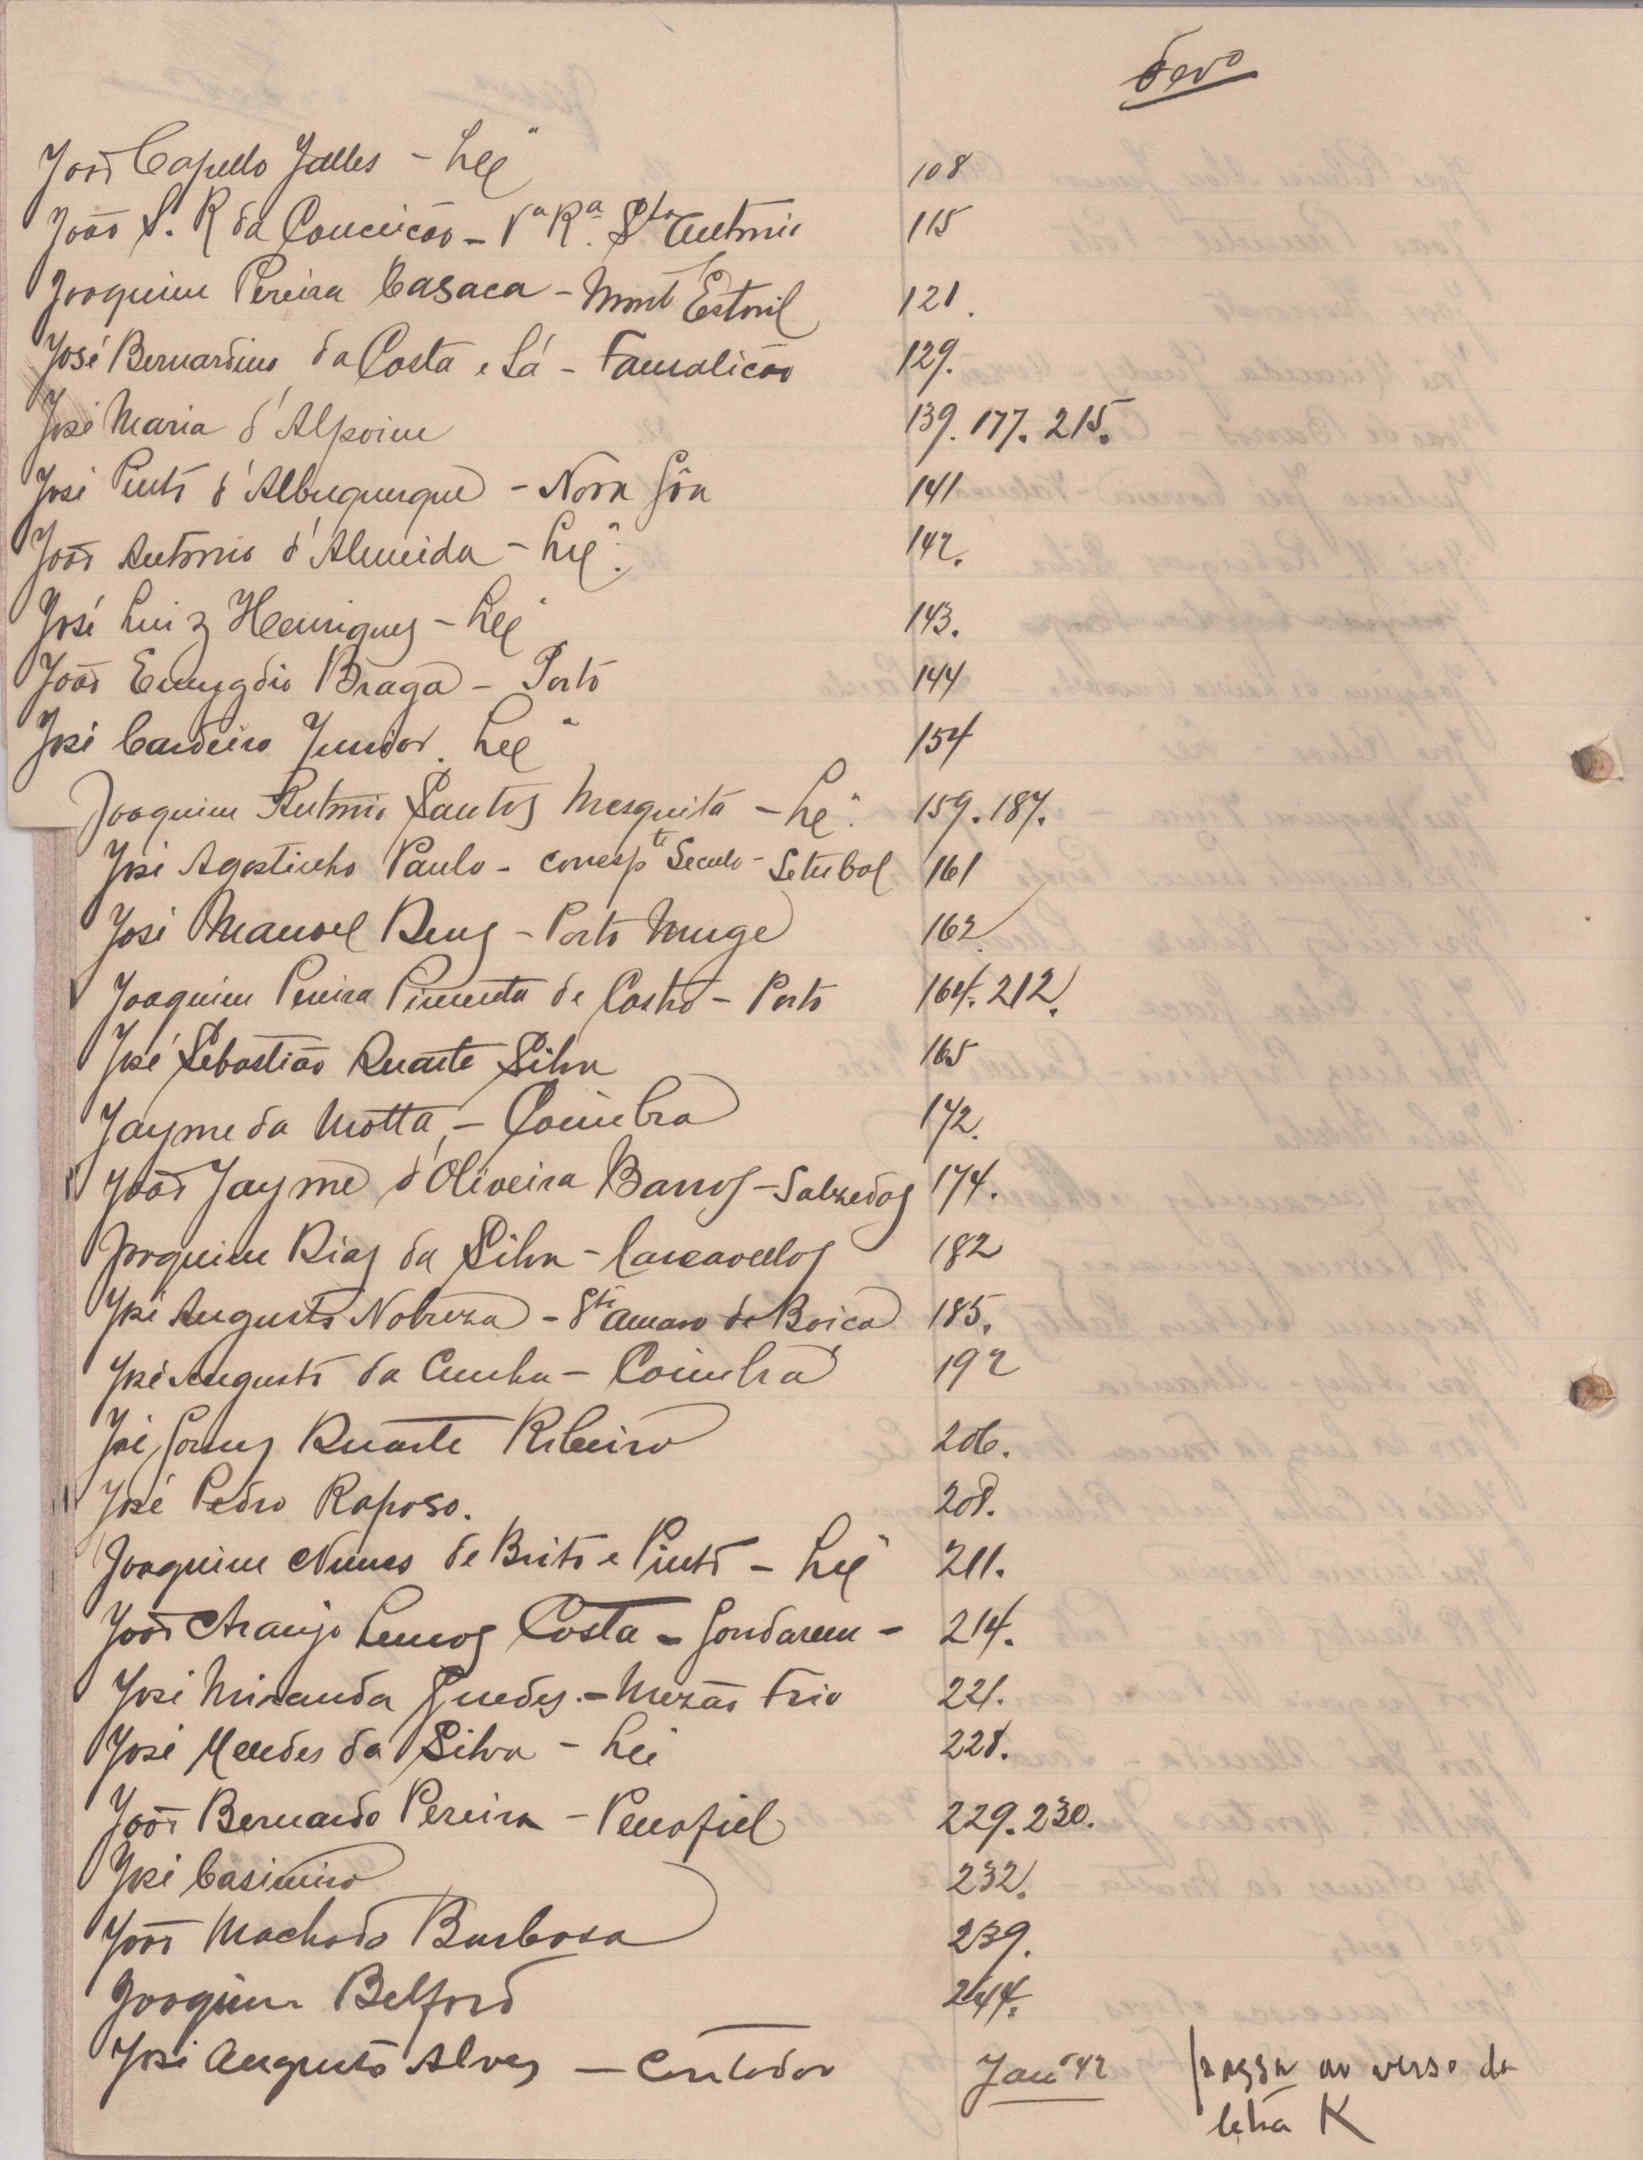 Fevo
João Capello Jalles - Lxª 108
João S. R da Conceição - Vª Rª Stº Antonio 115
Joaquim Pereira Casaca - Mont Estoril 121.
José Bernardino da Costa e Sá - Famalicão 129.
José Maria d'Alpoim 139. 177. 215.
José Pinto d'Albuquerque - Nova Gôa 141
João Antonio d'Almeida - Lxª. 142.
José Luiz Henriques - Lxª 143.
João Emygdio Braga - Porto 144
José Cardeiro Junior. Lxª 154
Joaquim Antonio Santos Mesquita - Lxª. 159. 187.
José Agostinho Paulo - corresp te Seculo - Setubal 161
José Manoel Denz - Porto Muge 162
Joaquim Pereira Pimenta de Castro - Porto 164. 212.
José Sebastião Duarte Silva 165
Jayme da Motta, - Coimbra 172.
João Jayme d'Oliveira Barros - Salzedas 174.
Joaquim Dias da Silva - Carcavellos 182
José Augusto Nobreza - Stº Amaro de Boiça 185.
José Augusto da Cunha - Coimbra 192
José Gomes Duarte Ribeiro 206.
José Pedro Raposo. 208.
Joaquim Nunes de Brito e Pinto - Lxª 211.
João Araujo Lemos Costa - Gondarem - 214.
José Miranda Guedes. - Mezão Frio 221.
José Mendes da Silva - Lxª 228.
João Bernardo Pereira - Penafiel 229. 230.
José Casimiro 232.
João Machado Barbosa 239.
Joaquim Belford 244.
José Augusto Alves - Contador Janº 42 passa ao verso da
letra K